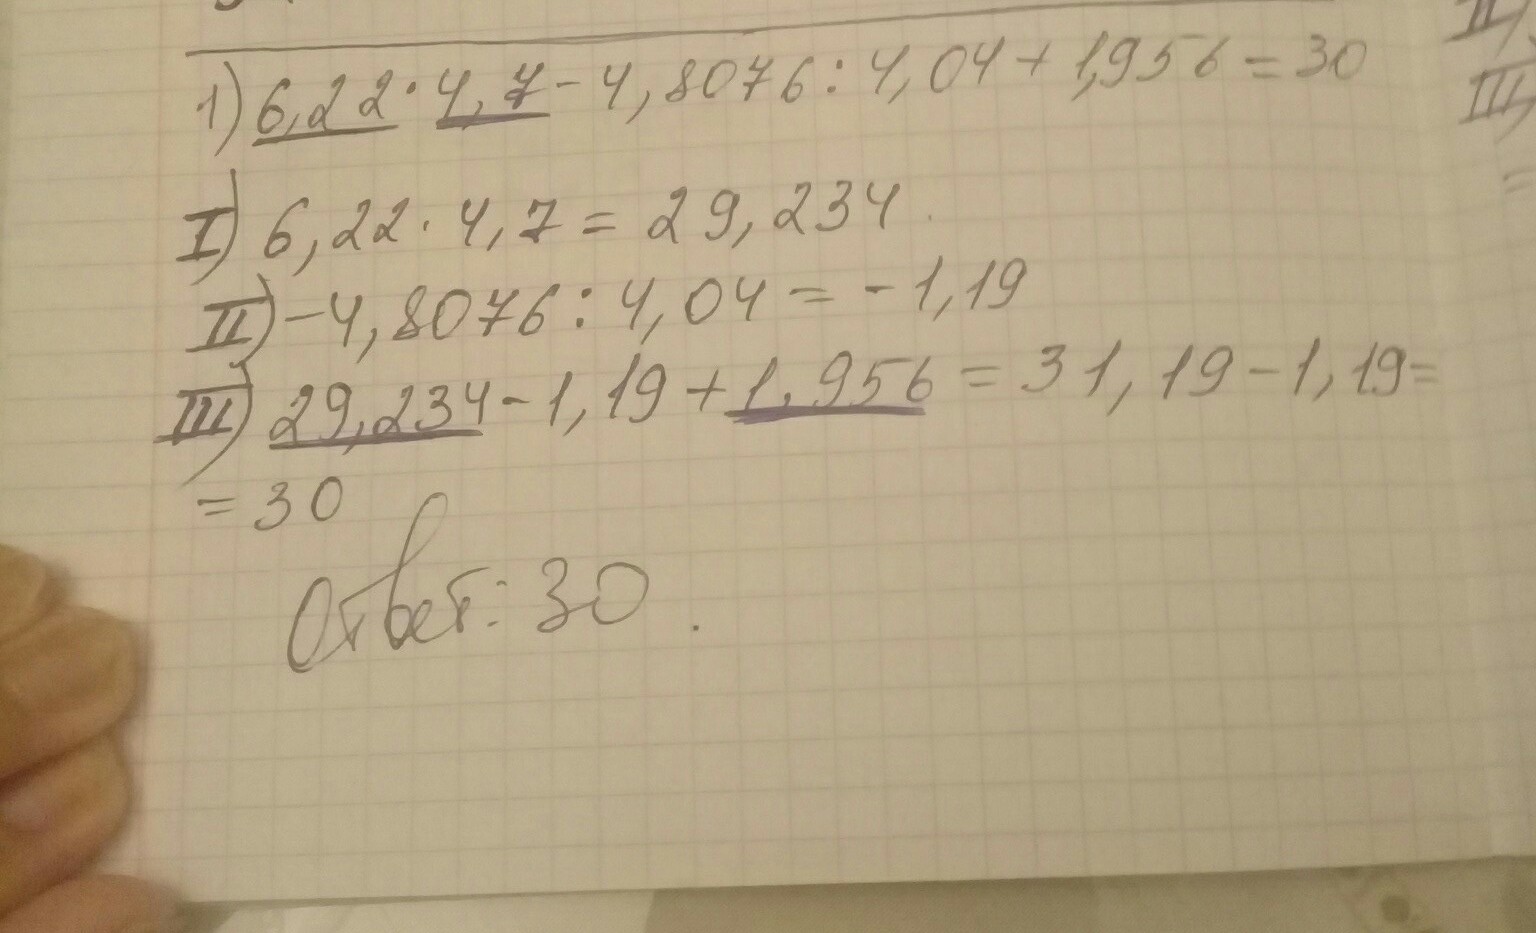 1) 6,22 · 4,7 - 4,8076 : 4,04 + 1,956 = 30
I) 6,22 · 4,7 = 29,234.
II) -4,8076 : 4,04 = -1,19
III) 29,234 - 1,19 + 1,956 = 31,19 - 1,19 =
= 30
Ответ: 30.
II)
III)
=